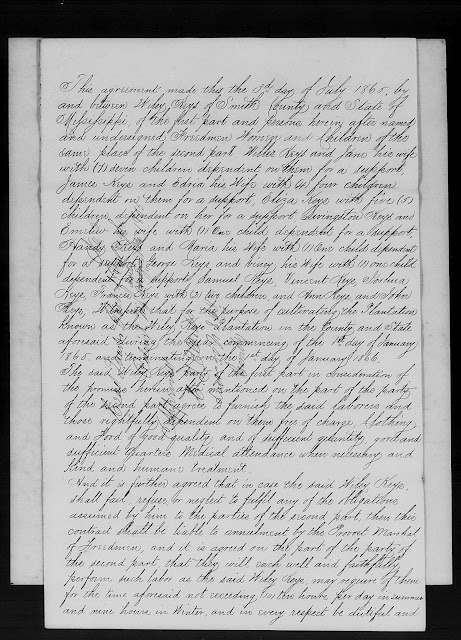 This agreement made this the 5th day of July 1865, by
and between Wiley Keys of Smith County and State of
Mississippi, of the first part and Persons herein after named
and undersigned, Freedmen Women and Children of the
same place of the second part Willis Keys and Jane his wife
with (7) seven children dependent on them for a support,
James Keys and Edria his Wife with (4) four children
dependent on them for a support, Eliza Keys with five (5)
children dependent on her for a support Livingston Keys and
Emeline his wife with (1) One child dependent for a support
Handy Keys and Maria his Wife with (1) One child dependent
for a support, George Keys and Viney his Wife with (1) one child
dependent for a support, Samuel Keys, Vincent Keys, Joshua
Keys, Frances Keys with (2) two children and Ann Keys, and John
Keys, Witnesseth that for the purpose of cultivating the Plantation
known as the Wiley Keys Plantation in the County and State
aforesaid during the Year commencing of the 1st day of January
1865, and terminating on the 1st day of January 1866.
The said Wiley Keys party of the first part in Consideration of
the promises herein after mentioned on the part of the party
of the second part agrees to furnish the said laborers and
those rightfully dependent on them free of charge, Clothing
and Food of Good quality, and of sufficient quantity, good and
sufficient Quarters Medical attendance when necessary, and
Kind and humane treatment.
And it is further agreed that in case the said Wiley Keys
shall fail, refuse, or neglect to fulfil any of the obligations
assumed by him to the parties of the second part, then this
contract shall be liable to annulment by the Provost Marshal
of Freedmen, and it is agreed on the part of the party of
the second part, that they will each well and faithfully
perform such labor as the said Wiley Keys, may require of them
for the time aforesaid not exceeding (10) ten hours per day in summer
and nine hours in Winter, and in every respect be dutiful and